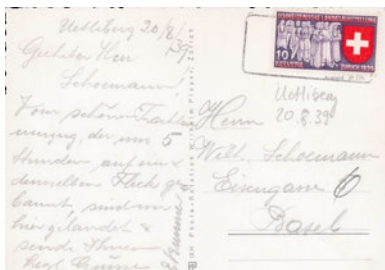 Uetliberg 20/8/39
Geehrter Herr
Schoemann!
Vom schönen Trachten
umzug, der uns 5
Stunden auf ein &
demselben Fleck ge
bannt, sind wir
hier gelandet &
sende Ihnen
Grüsse
SCHWEIZERISCHE LANDESAUSSTELLUNG
10
HELVETIA
ZÜRICH 1939
Uetliberg
20.8.39
Herrn
Wilh. Schoemann
Eisengasse 6
Basel
Wilhelm Pleyer, Zürich